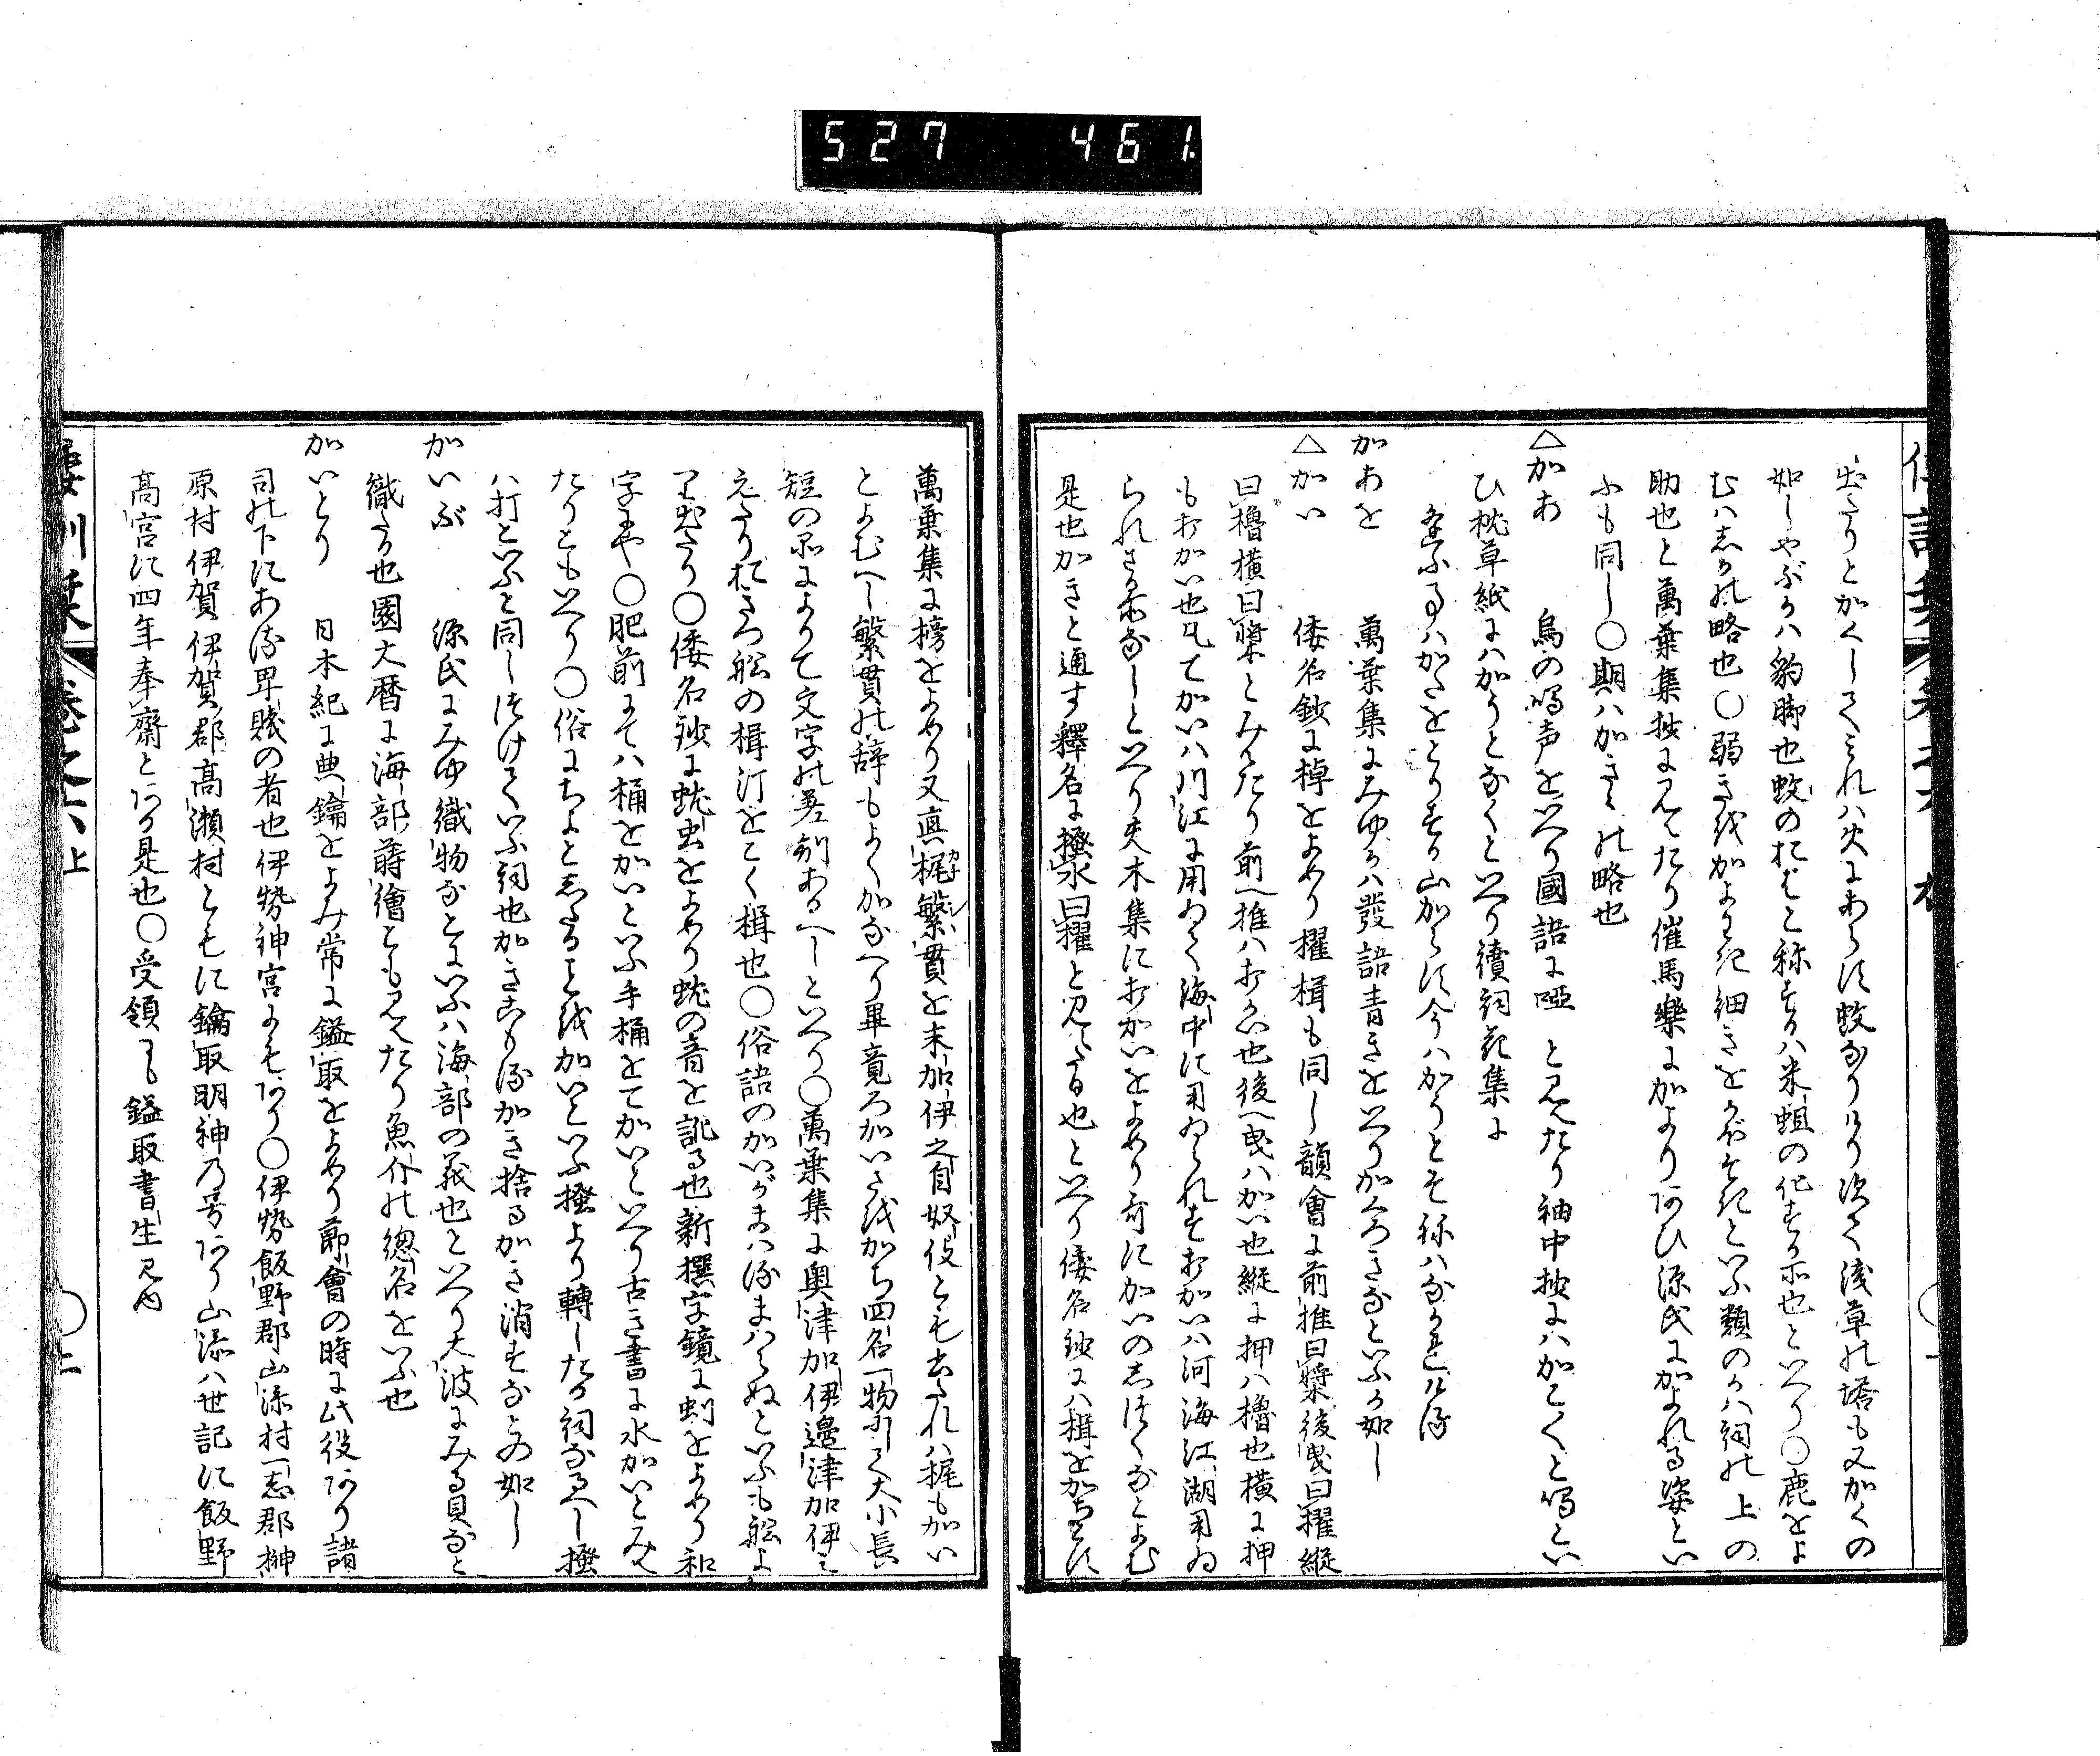 527 461
出たりとかくしてみれハ火にあらす蚊なりけり次て浅草の塔も又かくの
如しやぶかハ豹脚也蚊のおばと称するハ米蛆の化する所也といへり○鹿をよ
むハしかの略也○弱きをかよわき細きをかぼそきといふ類のかハ詞の上の
助也と萬葉集抄に見えたり催馬樂にかよりあひ源氏にかよれる姿とい
ふも同し○期ハかきりの略也
△かあ 烏の鳴声をいへり國語に啞と見えたり袖中抄にハかこくと鳴とい
ひ枕草紙にハかうとなくといへり續詞花集に
かあを 萬葉集にみゆかハ發語青きをいへりかくろきなといふか如し
△かい 倭名鈔に棹をよめり櫂楫も同し韻會に前推曰槳後曳曰櫂縦
曰櫓横曰槳とみえたり前へ推ハおかい也後へ曳ハかい也縦に押ハ櫓也横に押
もおかい也凡てかいハ川江に用ゐて海中に用ゐられすおかいハ河海江湖用ゐ
られさる所なしといへり夫木集におかいをよめり哥にかいのしつくなとよむ
是也かきと通す釋名に掻水曰櫂と見えたる也といへり倭名鈔にハ楫をかちとす
萬葉集に榜をよめり又真梶繁貫を末加伊之自奴伎とも書たれハ梶もかい
とよむへし繁貫の辞もよくかなへり畢竟ろかいさをかち四名一物にして大小長
短の品によりて文字の差別あるへしといへり○萬葉集に奥津加伊邊津加伊と
見えたりおきつ舩の楫汀をこく楫也○俗語のかいがまハるまハらぬといふも舩よ
り出たり○倭名鈔に蚘虫をよめり蚘の音を訛る也新撰字鏡に蜊をよめり和
字にや○肥前にてハ桶をかいといふ手桶をてかいといへり古き書に水かいとみえ
たりともいへり○俗にちよとしたる事をかいといふ掻より轉したる詞なるへし掻
ハ打といふと同しつけていふ詞也かきくもるかき捨るかき消すなとの如し
かいぶ 源氏にみゆ織物なとにいふハ海部の義也といへり大波にみる貝なと
織たる也園大暦に海部蒔繪とも見えたり魚介の總名をいふ也
かいとり 日本紀に典鑰をよみ常に鎰取をよめり節會の時に此役あり諸
司の下にある卑賎の者也伊勢神宮にもあり○伊勢飯野郡山添村一志郡榊
原村伊賀伊賀郡高瀬村ともに鑰取明神乃号あり山添ハ世記に飯野
髙宮に四年奉齋とある是也○受領にも鎰取書生見ゆ
巻之六上